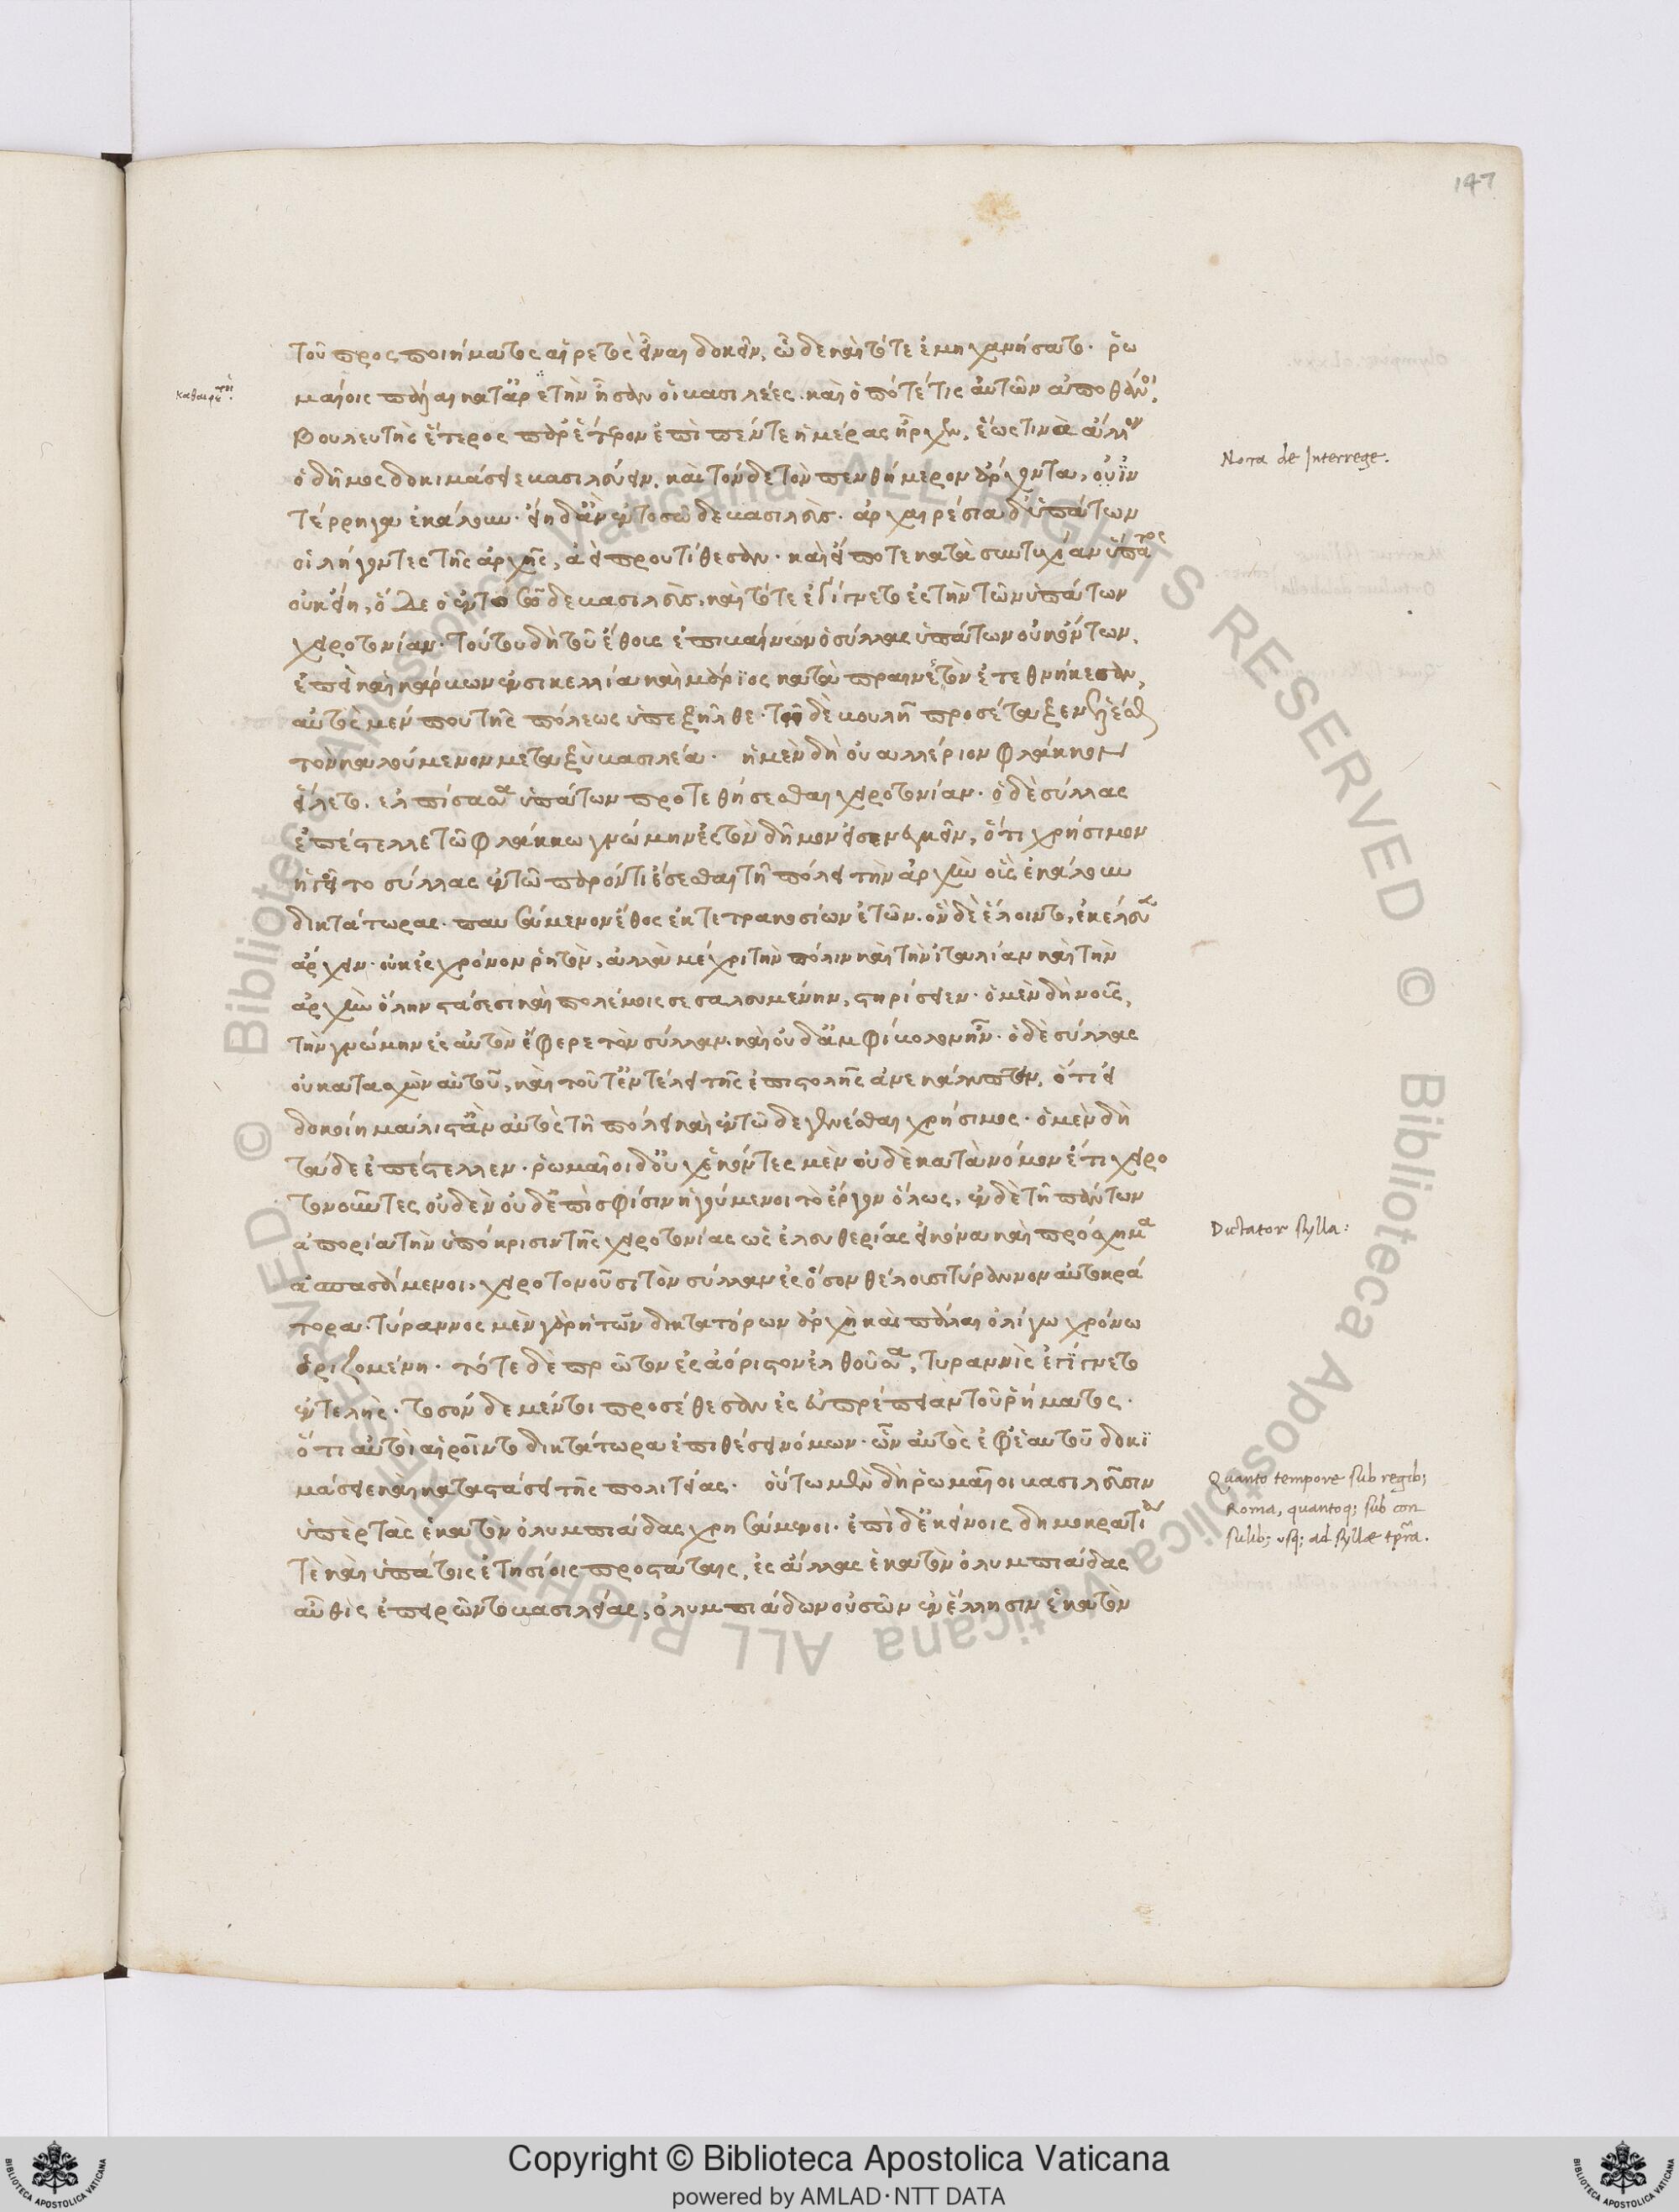 147
τοῦ προσποιήματος αἱρετὸς εἶναι δοκεῖν, ὧδε καὶ τότε ἐμηχανήσατο. ῥω
μαίοις πάλαι κατ' ἀρετὴν ἦσαν οἱ βασιλέες. καὶ ὁπότε τις αὐτῶν ἀποθάνοι,
βουλευτὴς ἕτερος παρ' ἕτερον ἐπὶ πέντε ἡμέρας ἦρχεν, ἕως τινὰ ἄλλον
ὁ δῆμος δοκιμάσειε βασιλεύειν. καὶ τόνδε τὸν πενθήμερον ἄρχοντα, οὐϊν
τέρρηγα ἐκάλουν. εἴη δ' ἂν ἐν τοσῷδε βασιλεύς. ἀρχαιρέσια δ' ὑπάτων
οἱ λήγοντες τῆς ἀρχῆς, ἀεὶ προυτίθεσαν. καὶ εἴ ποτε κατὰ συντυχίαν ὕπατος
οὐκ εἴη, ὅδε ὁ ἐν τοσῷδε βασιλεὺς, καὶ τότε ἐγίγνετο ἐς τὴν τῶν ὑπάτων
χειροτονίαν. τούτου δὴ τοῦ ἔθους ἐπιβαίνων ὁ σύλλας ὑπάτων οὐκ ὄντων,
ἐπεὶ καὶ κάρβων ἐν σικελλίᾳ καὶ μάριος κατὰ πραινετὸν ἐτεθνήκεσαν,
αὐτὸς μέν που τῆς πόλεως ὑπεξῆλθε. τῇ δὲ βουλῇ προσέταξεν ἑλέσθαι
τὸν καλούμενον μεταξὺ βασιλέα. ἡ μὲν δὴ οὐαλλέριον φλάκκον
εἵλετο. ἐλπίσασα ὑπάτων προτεθήσεσθαι χειροτονίαν. ὁ δὲ σύλλας
ἐπέστελλε τῷ φλάκκῳ γνώμην ἐς τὸν δῆμον ἐσενεγκεῖν, ὅτι χρήσιμον
ἡγεῖτο σύλλας ἐν τῷ παρόντι ἔσεσθαι τῇ πόλει τὴν ἀρχὴν οὓς ἐκάλουν
δικτάτωρας. παυσάμενον ἔθος ἐκ τετρακοσίων ἐτῶν. ὃν δὲ ἕλοιντο, ἐκέλευεν
ἄρχειν. οὐκ ἐς χρόνον ῥητὸν, ἀλλὰ μέχρι τὴν πόλιν καὶ τὴν ἰταλίαν καὶ τὴν
ἀρχὴν ὅλην στάσεσι καὶ πολέμοις σεσαλευμένην, στηρίσειεν. ὁ μὲν δὴ νοῦς,
τὴν γνώμην ἐς αὐτὸν ἔφερε τὸν σύλλαν. καὶ οὐδ' ἀμφίβολον ἦν. ὁ δὲ σύλλας
οὐ κατασχὼν αὑτοῦ, καὶ τοῦτ' ἐν τέλει τῆς ἐπιστολῆς ἀνεκάλυπτεν, ὅτι εἰ
δοκοίη μάλιστ' ἂν αὐτὸς τῇ πόλει καὶ ἐν τῷδε γενέσθαι χρήσιμος. ὁ μὲν δὴ
τάδε ἐπέστελλεν. ῥωμαῖοι δ' οὐχ ἑκόντες μὲν οὐδὲ κατὰ νόμον ἔτι χειρο
τονοῦντες οὐδὲν οὐδ' ἐπὶ σφίσιν ἡγούμενοι τὸ ἔργον ὅλως, ἐν δὲ τῇ πάντων
ἀπορίᾳ τὴν ὑπόκρισιν τῆς χειροτονίας ὡς ἐλευθερίας εἰκόνα καὶ πρόσχημα
ἀσπασάμενοι, χειροτονοῦσι τὸν σύλλαν ἐς ὅσον θέλοι τύραννον αὐτοκρά
τορα. τύραννος μὲν γὰρ ἡ τῶν δικτατόρων ἀρχὴ καὶ πάλαι ὀλίγῳ χρόνῳ
ὁριζομένη. τότε δὲ πρῶτον ἐς ἀόριστον ἐλθοῦσα, τυραννὶς ἐγίγνετο
ἐντελής. τοσόνδε μέντοι προσέθεσαν ἐς εὐπρέπειαν τοῦ ῥήματος.
ὅτι αὐτὸν αἱροῖντο δικτάτωρα ἐπὶ θέσει νόμων. ὧν αὐτὸς ἐφ' ἑαυτοῦ δοκι
μάσειε καὶ καταστάσει τῆς πολιτείας. οὕτω μὲν δὴ ῥωμαῖοι βασιλεῦσιν
ὑπὲρ τὰς ἑκατὸν ὀλυμπιάδας χρησάμενοι. ἐπὶ δ' ἐκείνοις δημοκρατίᾳ
τε καὶ ὑπάτοις ἐτησίοις προστάταις, ἐς ἄλλας ἑκατὸν ὀλυμπιάδας
αὖθις ἐπειρῶντο βασιλείας, ὀλυμπιάδων οὐσῶν ἐν ἕλλησιν ἑκατὸν
Nota de Interrege.
Dictator Sylla:
Quanto tempore sub regib;
Roma, quantoq; sub con
sulib; usq; ad Syllæ tp̃ra.
Copyright © Biblioteca Apostolica Vaticana
powered by AMLAD·NTT DATA